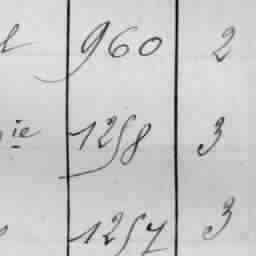 960 2
ie 1258 3
1257 3